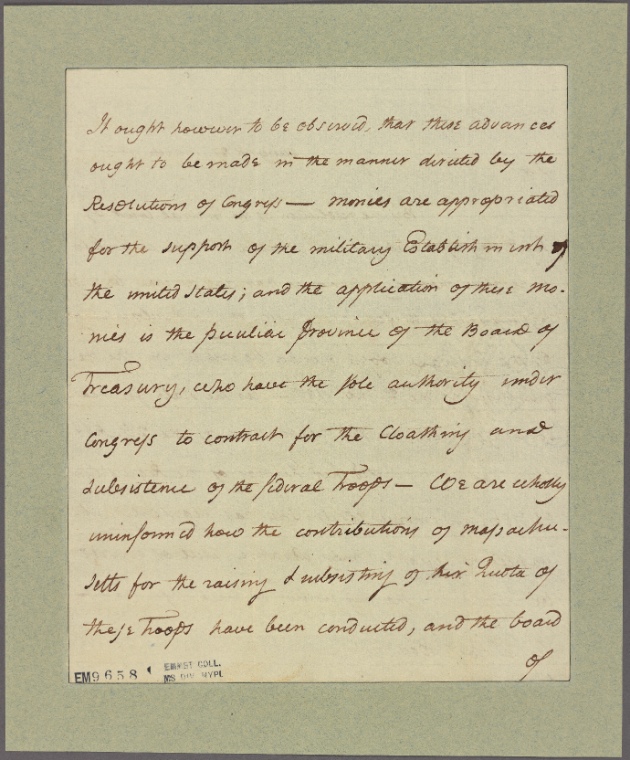 It ought however to be observed, that these advances
ought to be made in the manner directed by the
Resolutions of Congress — monies are appropriated
for the support of the military Establishment of
the united States; and the application of these mo-
nies is the peculiar province of the Board of
Treasury, who have the sole authority under
Congress to contract for the Cloathing and
subsistence of the federal Troops — We are wholly
uninformed how the contributions of Massachu-
setts for the raising & subsisting of her Quota of
these Troops have been conducted, and the board
of
EM9658
EMMET COLL.
MS DIV NYPL